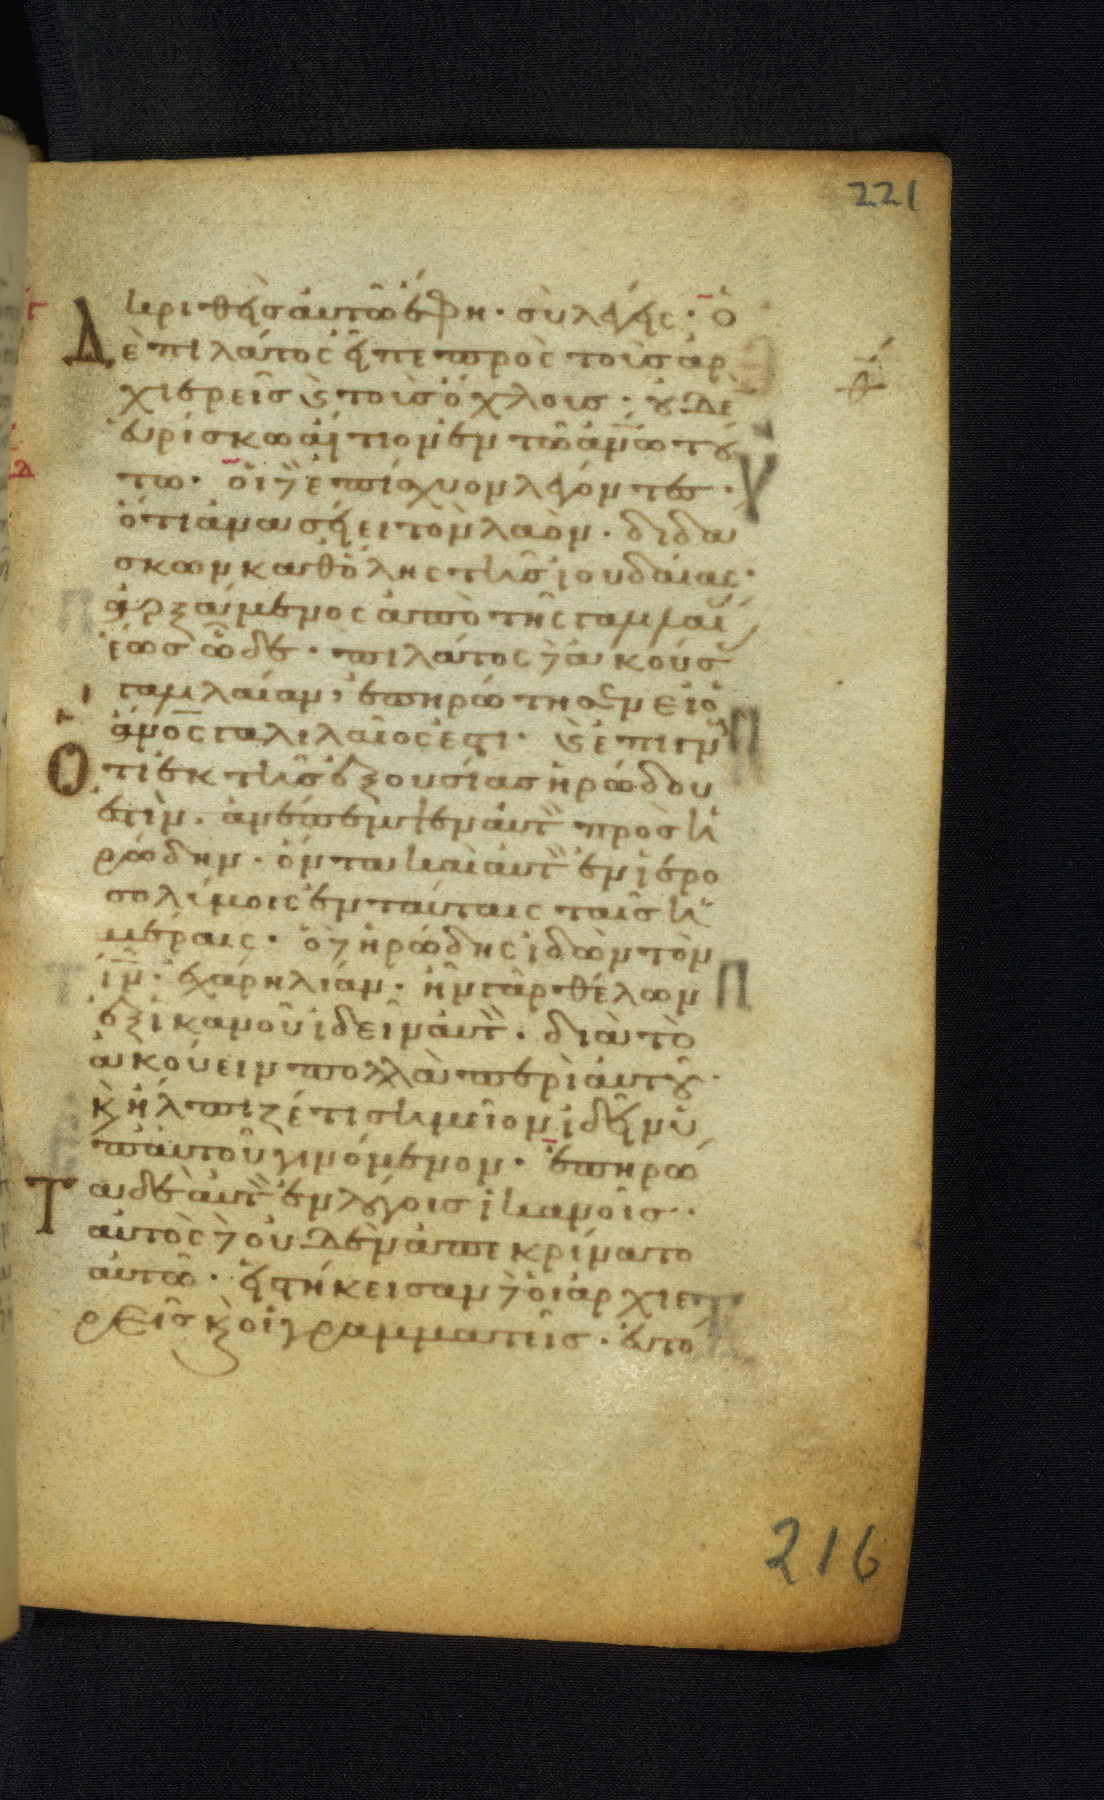 221
κριθὴς αὐτῶ ἔφη · σὺ λέγεις · ὁ
Δὲ πιλάτος εἶπε πρὸς τοὺς ἀρ
χιερεῖς καὶ τοὺς ὄχλους · οὐδὲ
εὑρίσκω αἴτιον ἐν τῶ ἀνω τού
τω · οἱ δὲ ἐπίσχυον λέγοντες ·
ὅτι ἀνασείει τὸν λαὸν · διδά
σκων καθόλης τῆς ἰουδαίας ·
ἀρξάμενος ἀπὸ τῆς γαλλαι
ἕως ὧδε · πιλάτος δὲ ἀκούσ
γαλιλαίαν, ἐπηρώτησεν εἰ ὁ
ἀνος γαλιλαῖος ἐστι · καὶ ἐπιγν
Ὅτι ἐκ τῆς ἐξουσίας ἡρώδου
ἐστὶν · ἀνέπεμψεν αὐτ πρὸς ἡ
ρώδην · ὄντα καὶ αὐτ ἐν ἱερο
σολύμοις ἐν ταύταις ταῖς ἡ
μέραις · ὁ δὲ ἡρώδης ἰδὼν τὸν
ιν · ἐχάρη λίαν · ἦν γὰρ θέλων
ἐξ ἱκανοῦ ἰδεῖν αὐτ · διὰ τὸ
ἀκούειν πολλὰ περὶ αὐτοῦ ·
κ ἤλπιζέ τι σημεῖον ἰδεῖν ὑ
π αὐτοῦ γινόμενον · ἐπηρώ
Τα δὲ αὐτ ἐν λόγοις ἱκανοῖς ·
αὐτὸς δὲ οὐδὲν ἀπεκρίνατο
αὐτῶ · εἱστήκεισαν δὲ οἱ ἀρχιε
ρεῖς κ οἱ γραμματεῖς · εὐτό
216